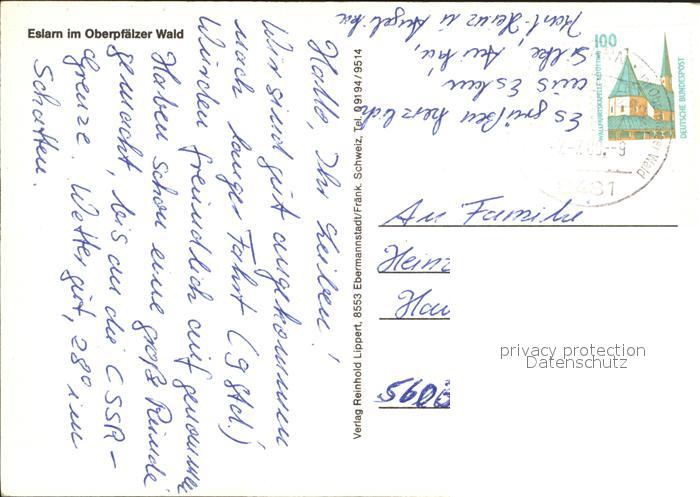 Eslarn im Oberpfälzer Wald
Hallo, Ihr Lieben!
Wir sind gut angekommen
nach langer Fahrt (9 Std.)
Wurden freundlich aufgenommen
Haben schon eine große Runde
gemacht, bis an die CSSR-
Grenze. Wetter gut, 28° im
Schatten.
Es grüßen herzlich
aus Eslarn
Silke, Anika,
Karl-Heinz u Angelika
Verlag Reinhold Lippert, 8553 Ebermannstadt/Fränk. Schweiz, Tel. 09194/9514
100
WALLFAHRTSKAPELLE ALTÖTTING
DEUTSCHE BUNDESPOST
An Familie
Heinz
Hau
5608
privacy protection
Datenschutz